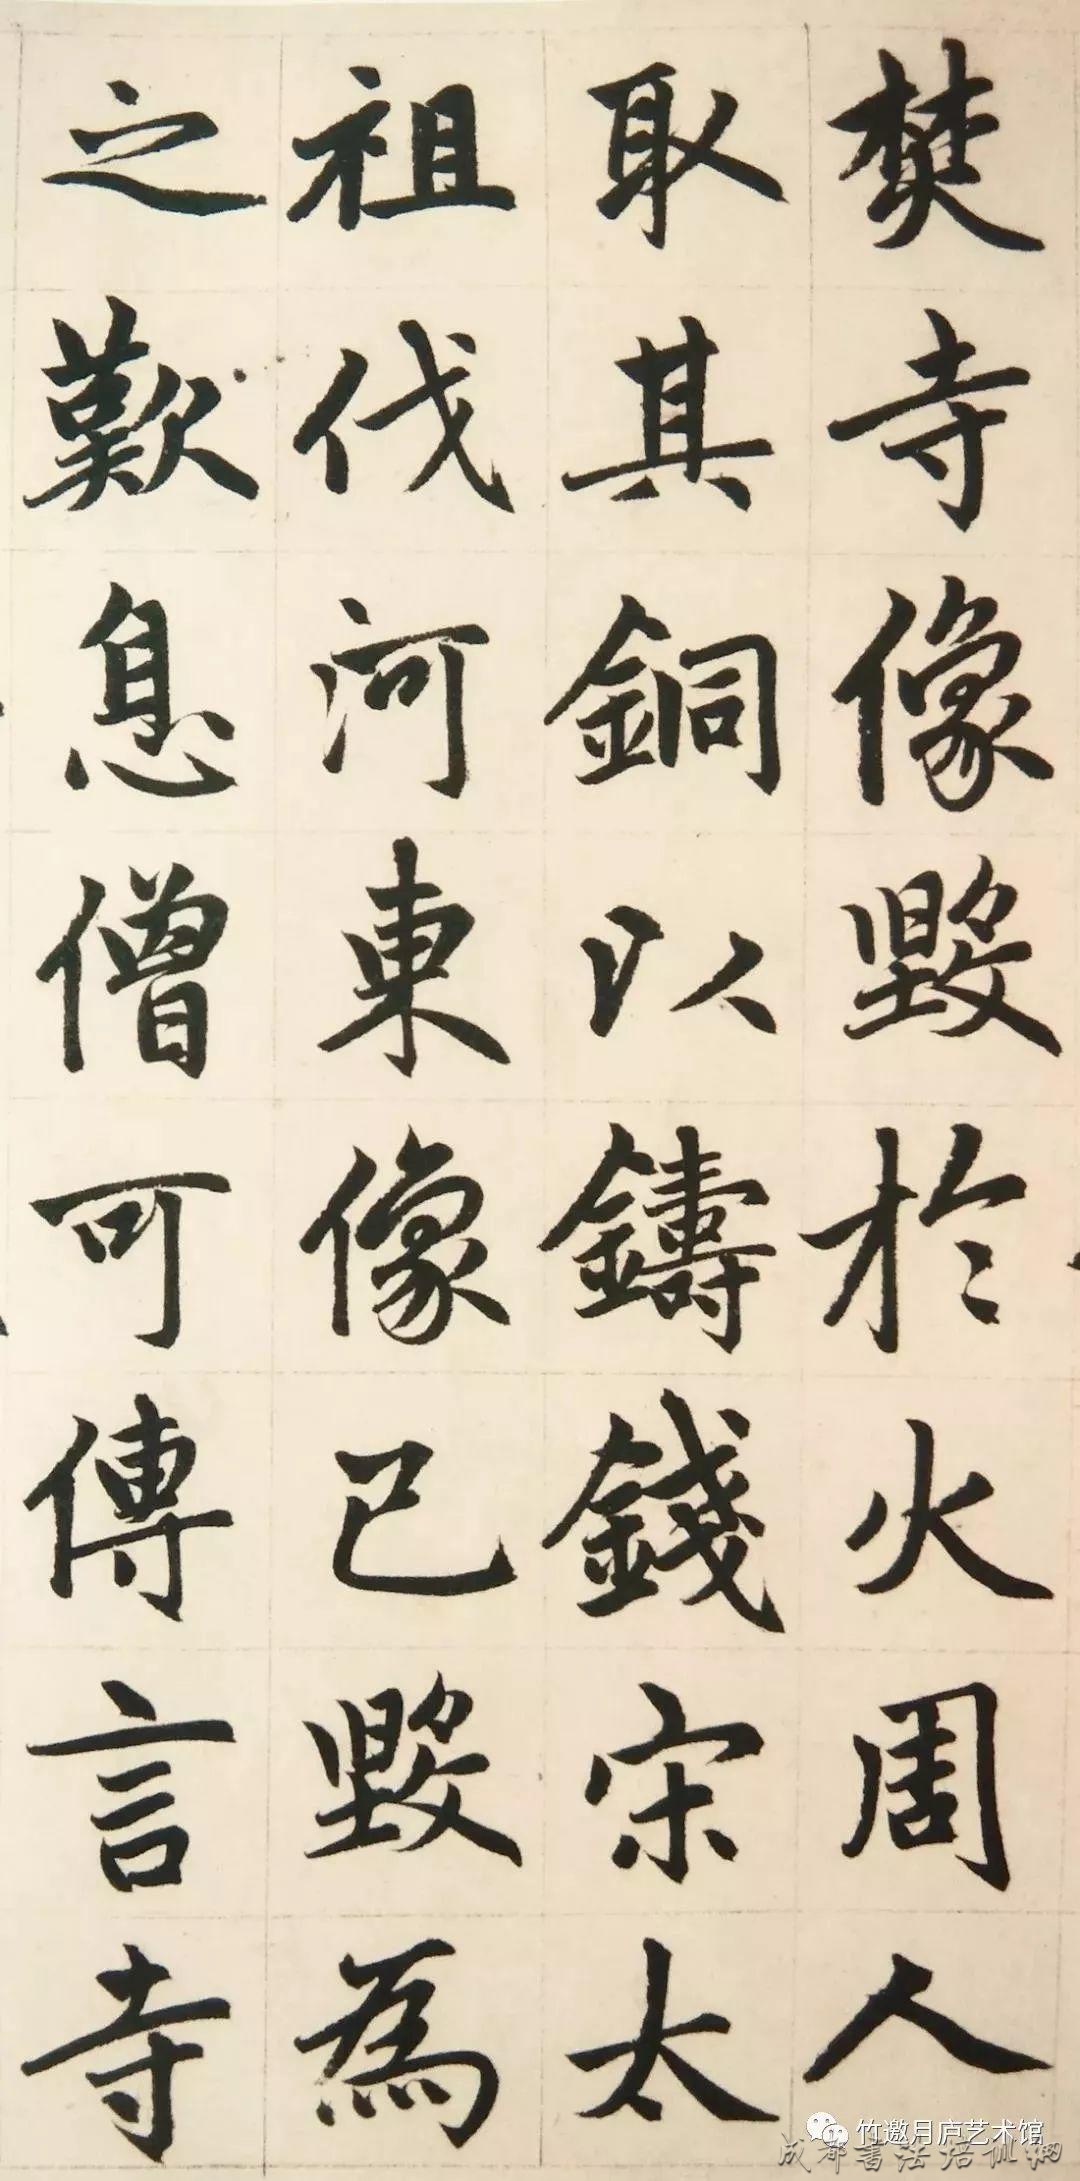 焚寺像毀於火周人
取其銅以鑄錢宋太
祖伐河東像已毀為
之歎息僧可傳言寺
竹邀月庐艺术馆
成都書法培训網